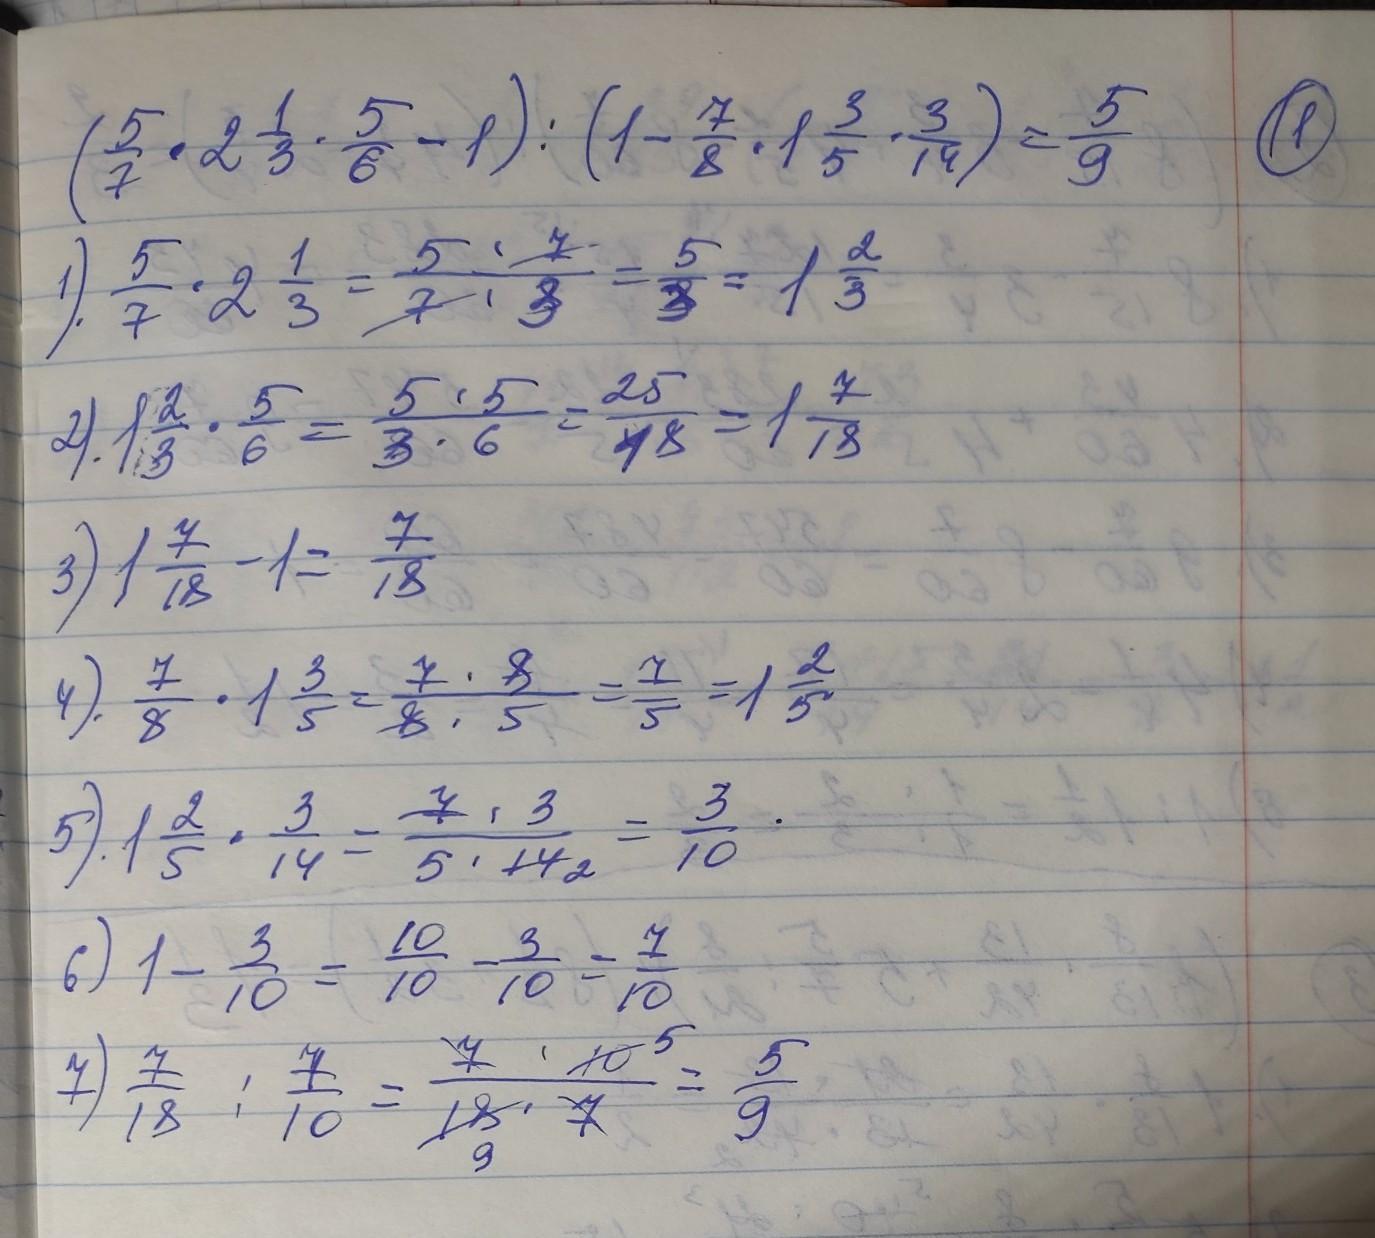 (5/7 · 2 1/3 · 5/6 - 1) : (1 - 7/8 · 1 3/5 · 3/14) = 5/9 (1)
1). 5/7 · 2 1/3 = 5 · 7/7 · 3 = 5/3 = 1 2/3
2). 1 2/3 · 5/6 = 5 · 5/3 · 6 = 25/18 = 1 7/18
3) 1 7/18 - 1 = 7/18
4). 7/8 · 1 3/5 = 7 · 8/8 · 5 = 7/5 = 1 2/5
5). 1 2/5 · 3/14 = 7 · 3/5 · 14 2 = 3/10 .
6) 1 - 3/10 = 10/10 - 3/10 = 7/10
7) 7/18 : 7/10 = 7 · 10 5/18 9 · 7 = 5/9